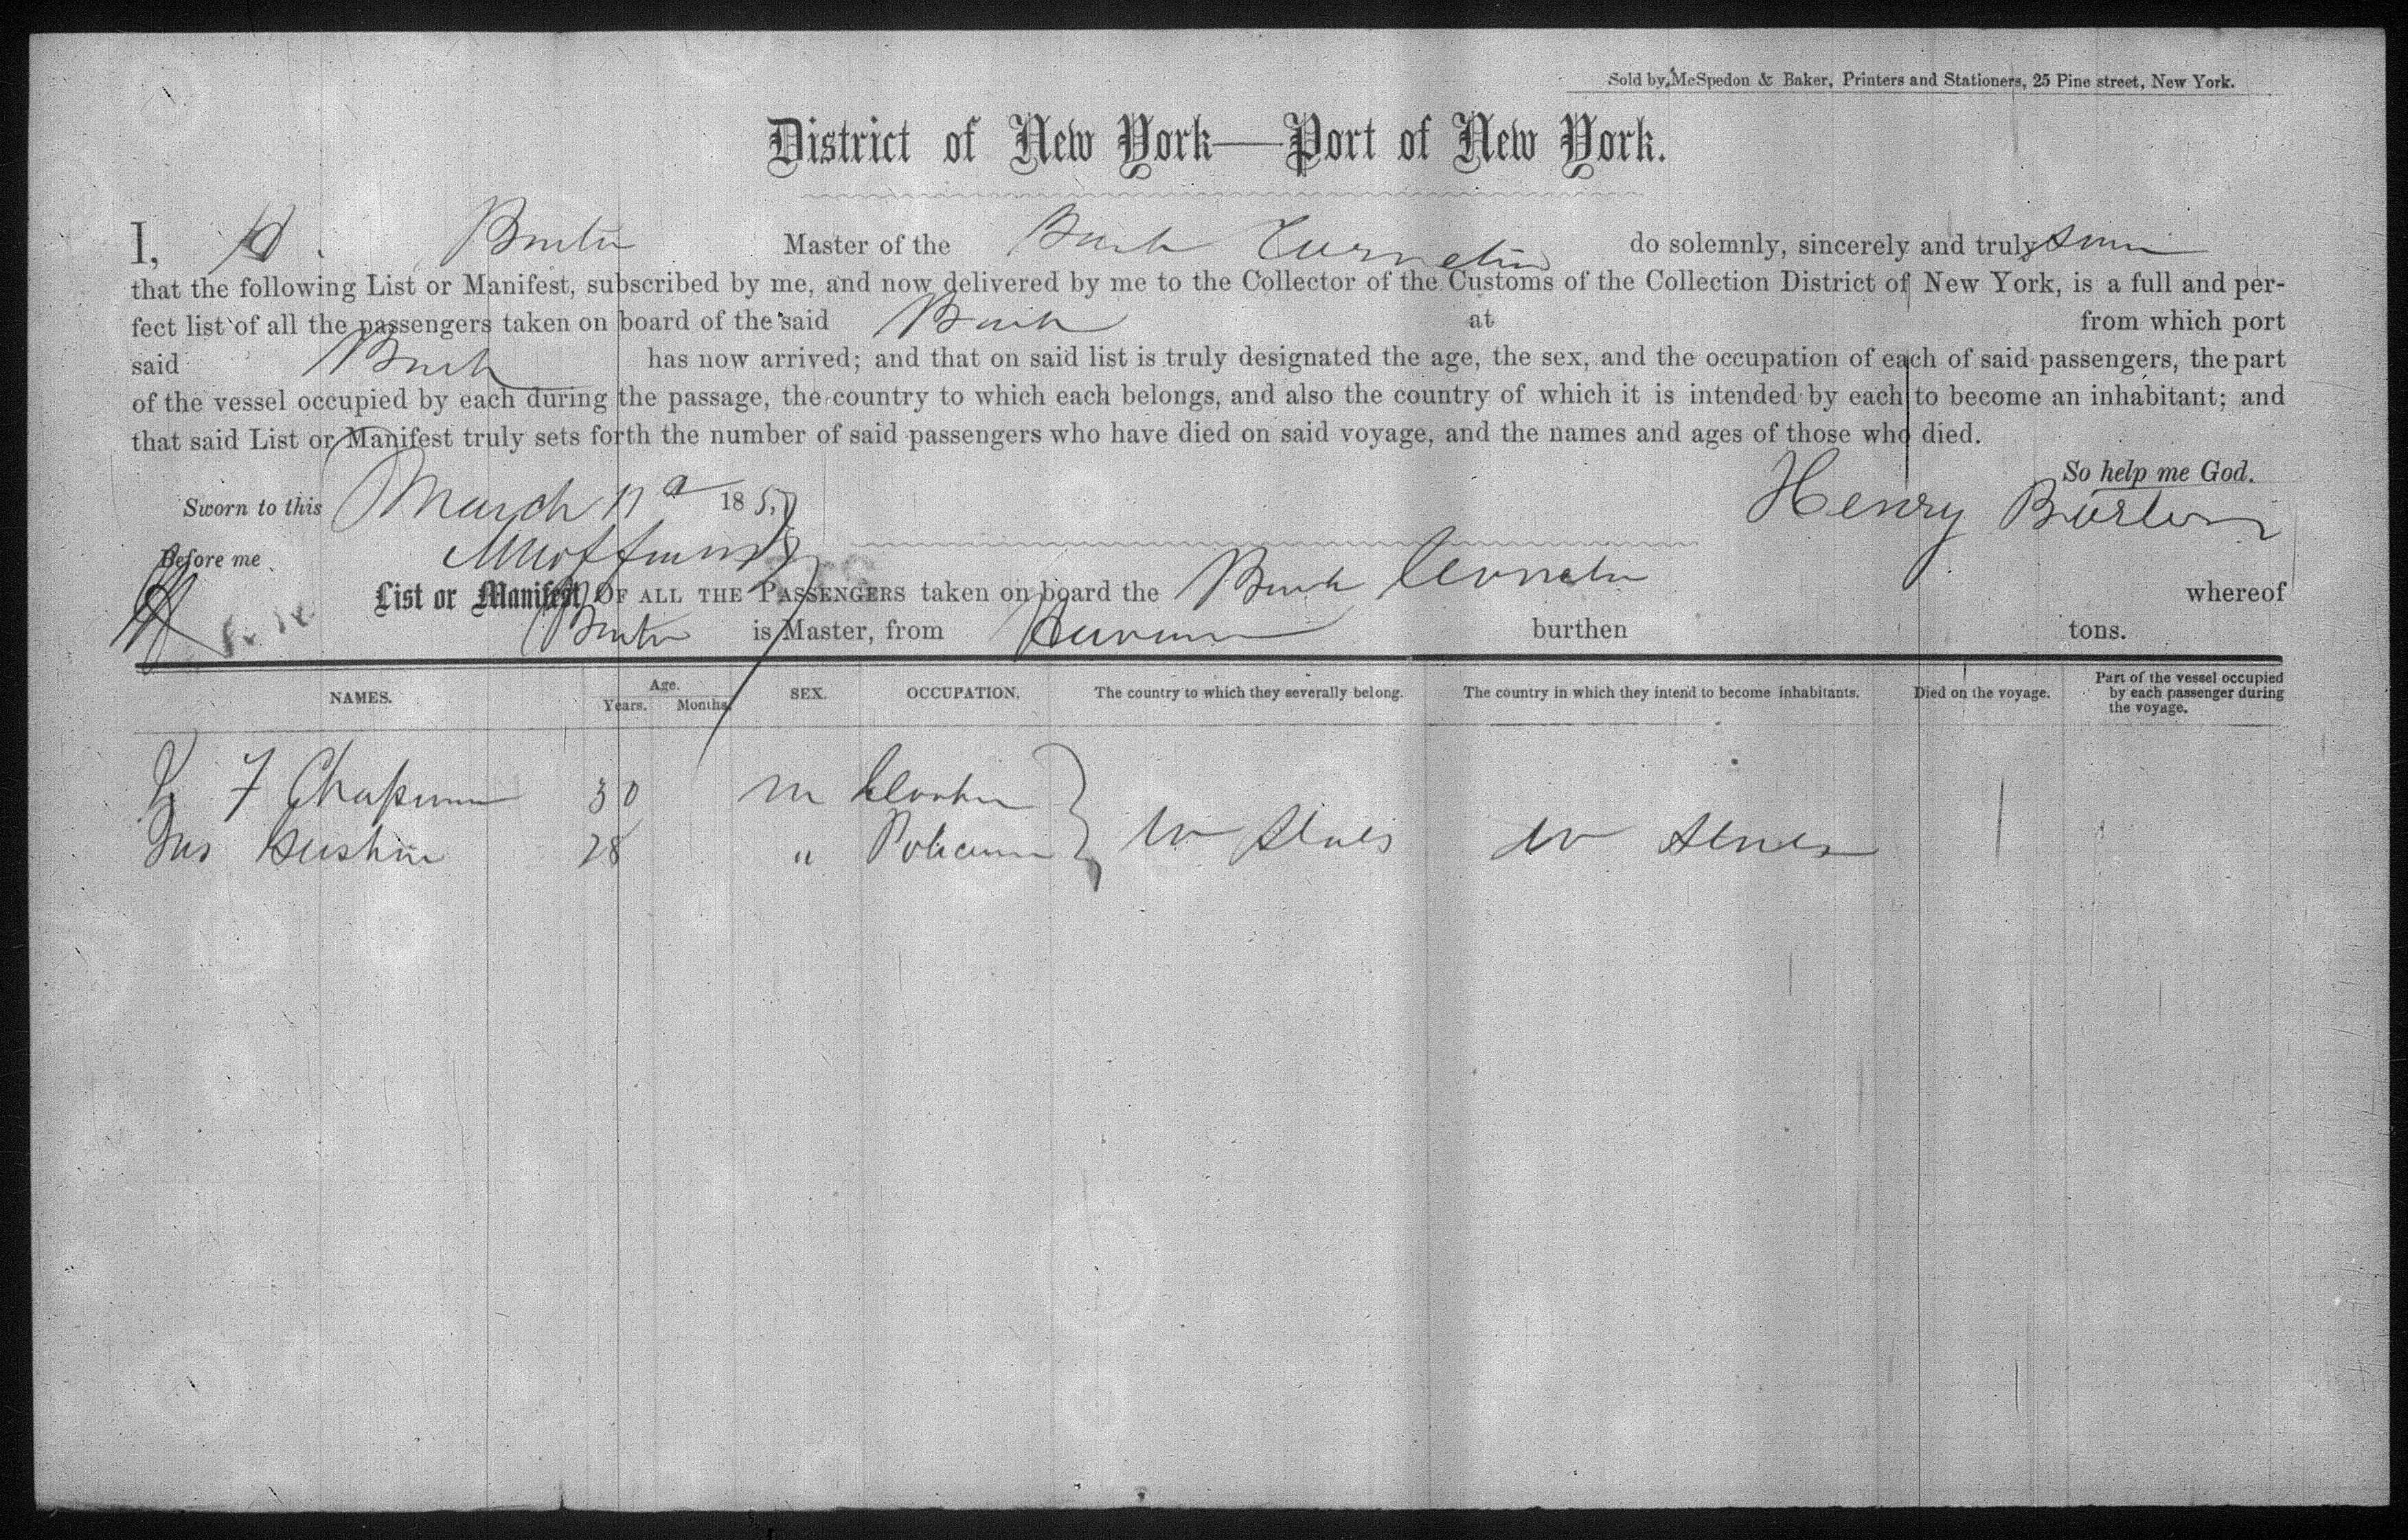 Sold by McSpedon & Baker, Printers and Stationers, 25 Pine street, New York.
District of New York—Port of New York.
I, H. Burton Master of the Bark Cornelia do solemnly, sincerely and truly swear
that the following List or Manifest, subscribed by me, and now delivered by me to the Collector of the Customs of the Collection District of New York, is a full and per-
fect list of all the passengers taken on board of the said Bark at from which port
said Bark has now arrived; and that on said list is truly designated the age, the sex, and the occupation of each of said passengers, the part
of the vessel occupied by each during the passage, the country to which each belongs, and also the country of which it is intended by each to become an inhabitant; and
that said List or Manifest truly sets forth the number of said passengers who have died on said voyage, and the names and ages of those who died.
So help me God.
Sworn to this March 11 185
Henry Burton
Before me
List or Manifest OF ALL THE PASSENGERS taken on board the Bark Cornelia whereof
Burton is Master, from Havana burthen tons.
NAMES. Age. Years. Months. SEX. OCCUPATION. The country to which they severally belong. The country in which they intend to become inhabitants. Died on the voyage. Part of the vessel occupied by each passenger during the voyage.
F Chapman 30 m U States U States
28 " Policeman